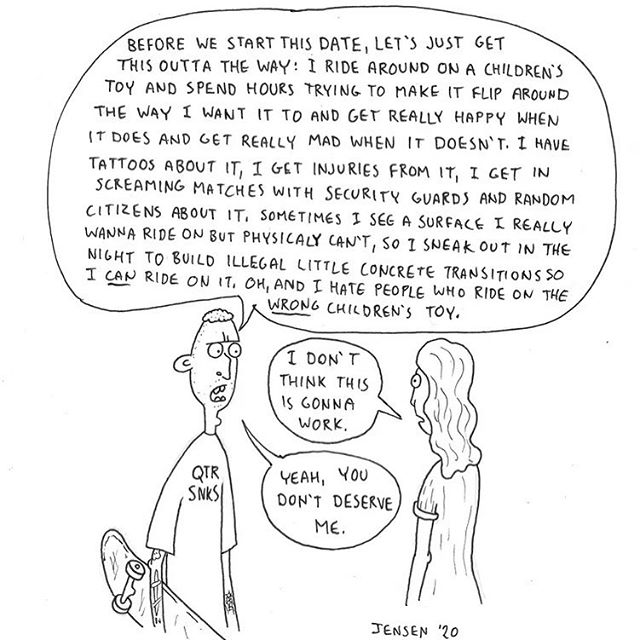 BEFORE WE START THIS DATE, LET'S JUST GET
THIS OUTTA THE WAY: I RIDE AROUND ON A CHILDREN'S
TOY AND SPEND HOURS TRYING TO MAKE IT FLIP AROUND
THE WAY I WANT IT TO AND GET REALLY HAPPY WHEN
IT DOES AND GET REALLY MAD WHEN IT DOESN'T. I HAVE
TATTOOS ABOUT IT, I GET INJURIES FROM IT, I GET IN
SCREAMING MATCHES WITH SECURITY GUARDS AND RANDOM
CITIZENS ABOUT IT. SOMETIMES I SEE A SURFACE I REALLY
WANNA RIDE ON BUT PHYSICALY CAN'T, SO I SNEAK OUT IN THE
NIGHT TO BUILD ILLEGAL LITTLE CONCRETE TRANSITIONS SO
I CAN RIDE ON IT. OH, AND I HATE PEOPLE WHO RIDE ON THE
WRONG CHILDREN'S TOY.
I DON'T
THINK THIS
IS GONNA
WORK.
YEAH, YOU
DON'T DESERVE
ME.
QTR
SNKS
JENSEN '20